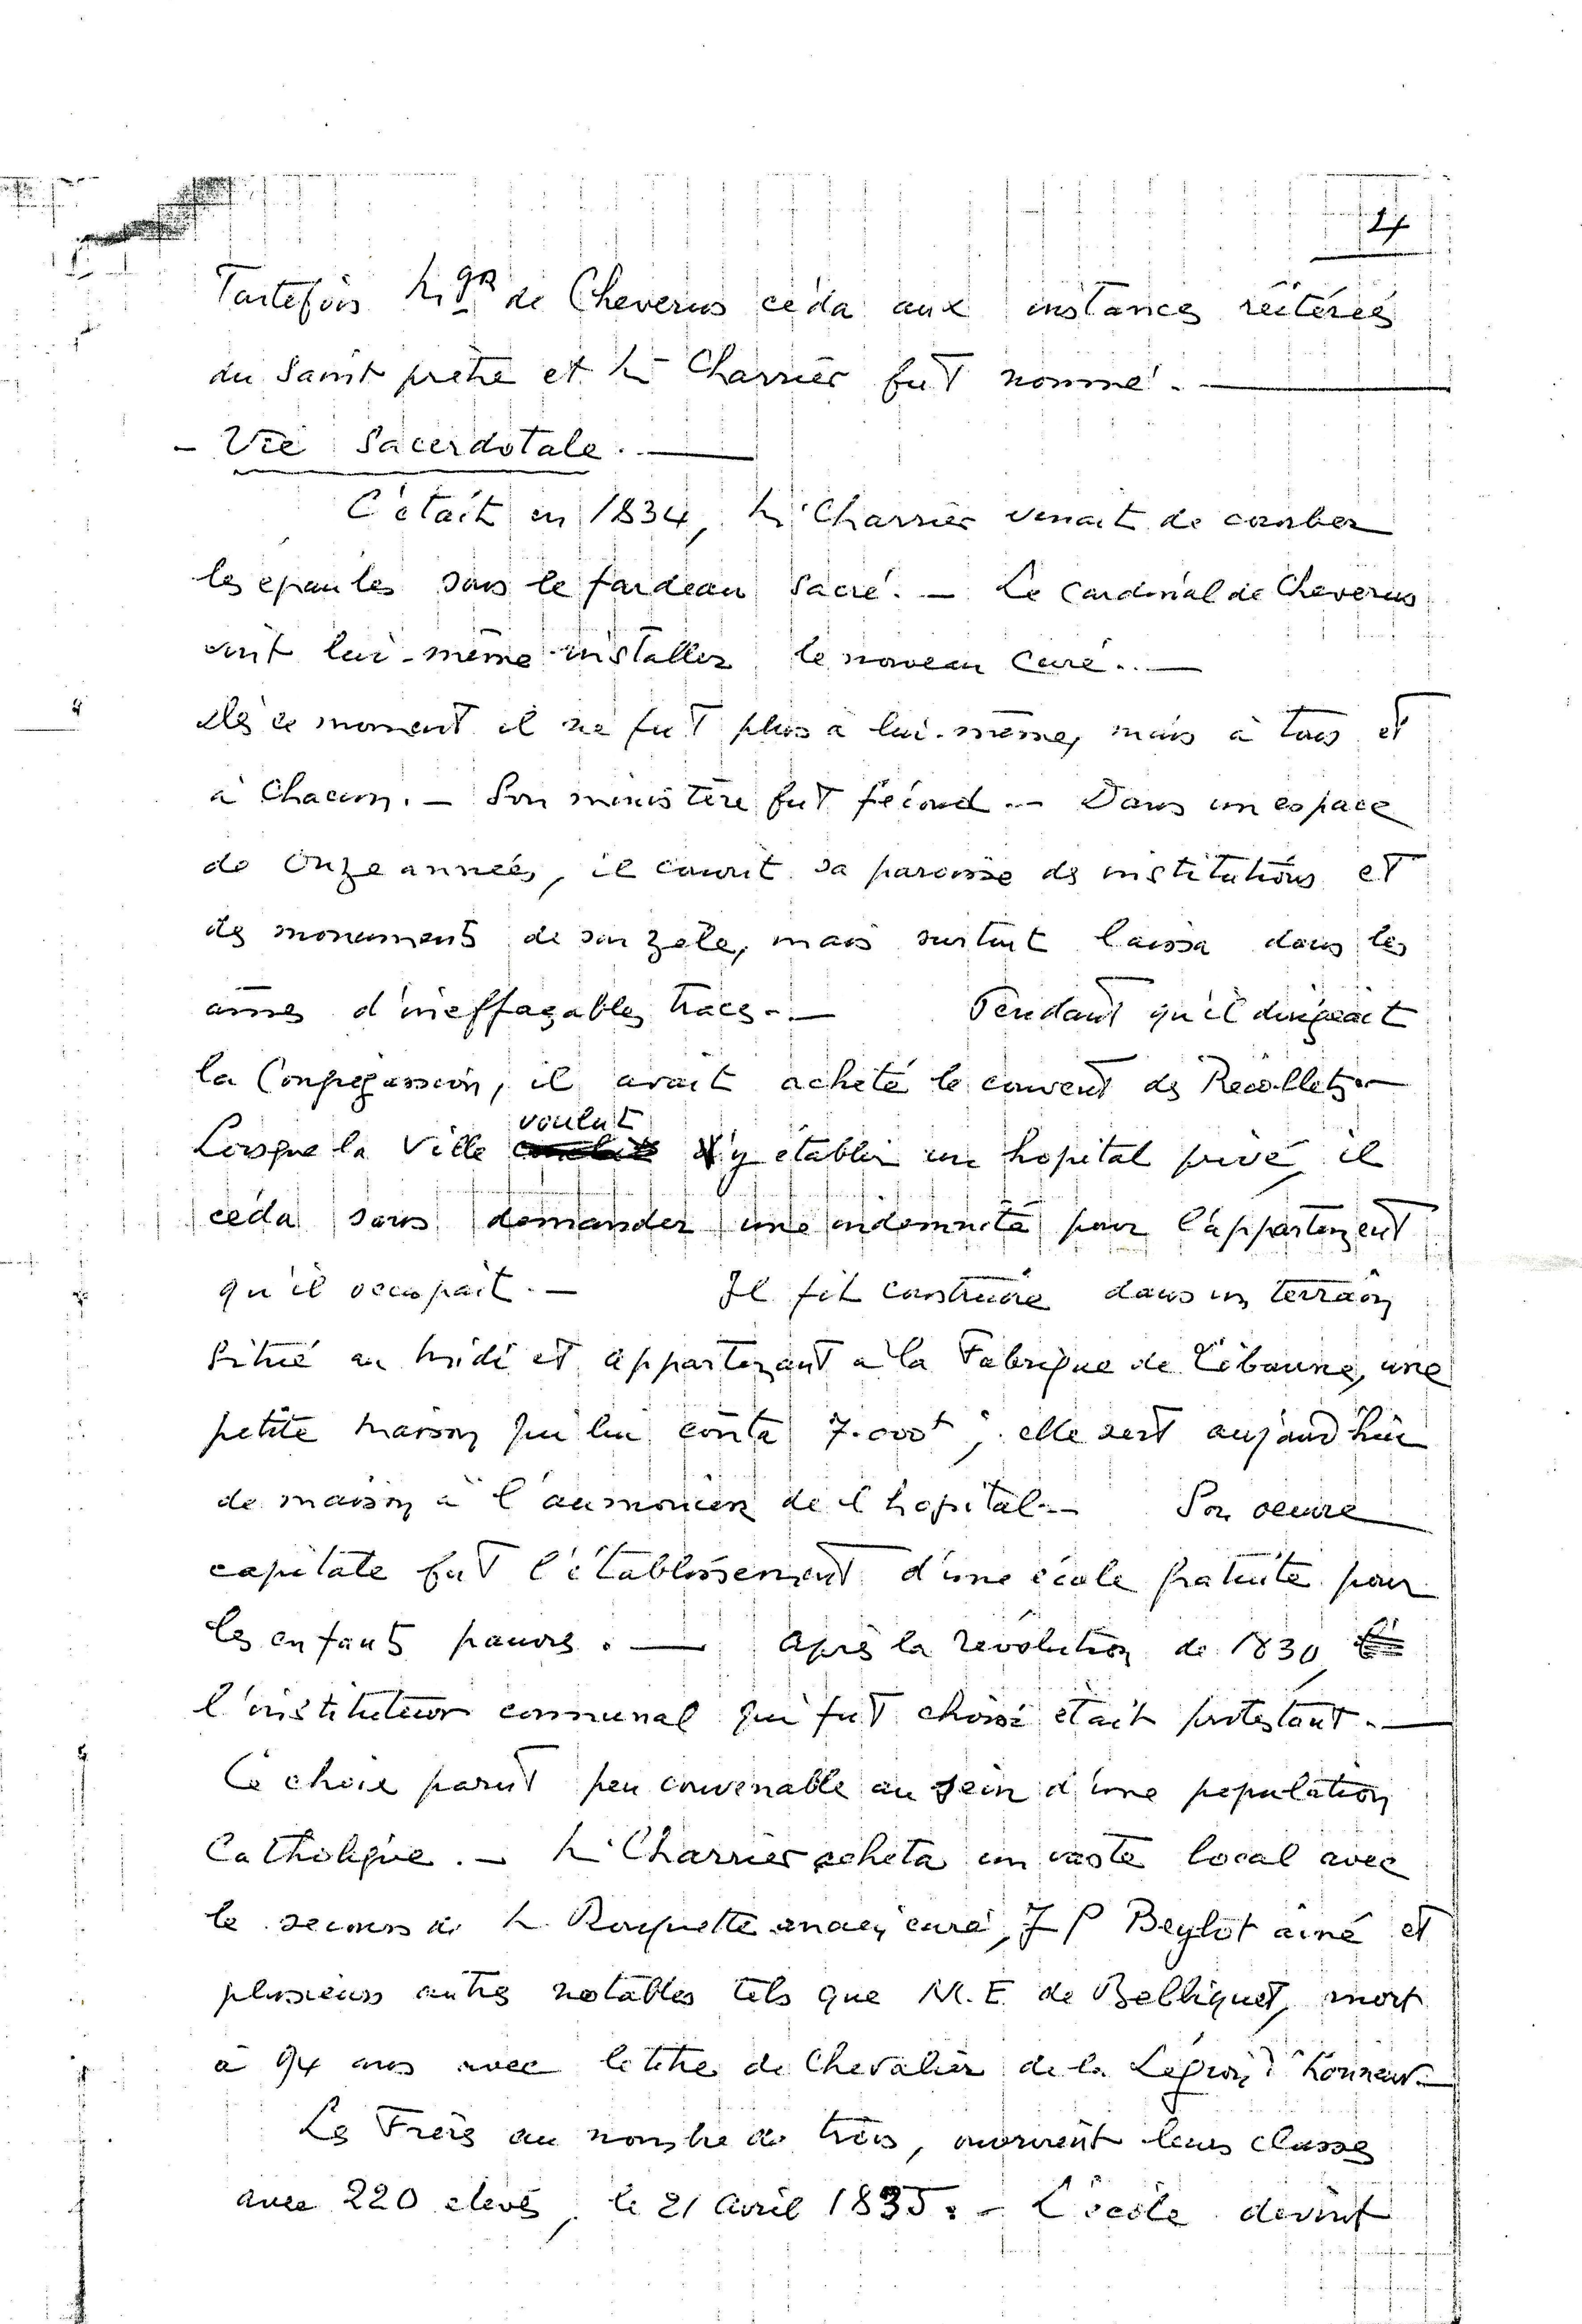 4
Toutefois Mgr de Cheverus céda aux instances réitérées
du Saint prêtre et Mr Charrier fut nommé. —
- Vie Sacerdotale. —
C'était en 1834, Mr Charrier venait de courber
les épaules sous le fardeau sacré. - Le Cardinal de Cheverus
vint lui-même installer le nouveau curé. . —
Dès ce moment il ne fut plus à lui-même, mais à tous et
à chacun. - Son ministère fut fécond. - Dans un espace
de onze années, il couvrit sa paroisse des institutions et
des monuments de son zèle, mais surtout laissa dans les
âmes d'ineffaçables traces. - Pendant qu'il dirigeait
la Congrégation, il avait acheté le couvent des Récollets. -
voulut
Lorsque la Ville y établir un hopital privé, il
céda sans demander une indemnité pour l'appartement
qu'il occupait. - Il fit construire dans un terrain
situé au Midi et appartenant à la Fabrique de Libourne, une
petite maison qui lui coûta 7.000f ; elle sert aujourd'hui
de maison à l'aumônier de l'hopital. - Son oeuvre
capitale fut l'établissement d'une école gratuite pour
les enfants pauvres. — Après la révolution de 1830,
l'instituteur communal qui fut choisi était protestant. —
Ce choix parut peu convenable au sein d'une population
Catholique. - Mr Charrier acheta un vaste local avec
le secours de M. Roquette ancien curé, J P Beylot ainé et
plusieurs autres notables tels que M. E. de Belliquet, mort
à 94 ans avec le titre de Chevalier de la Légion d'honneur. -
Les Frères au nombre de trois, ouvrirent leurs classes
avec 220 élèves, le 21 avril 1835. - L'école devint